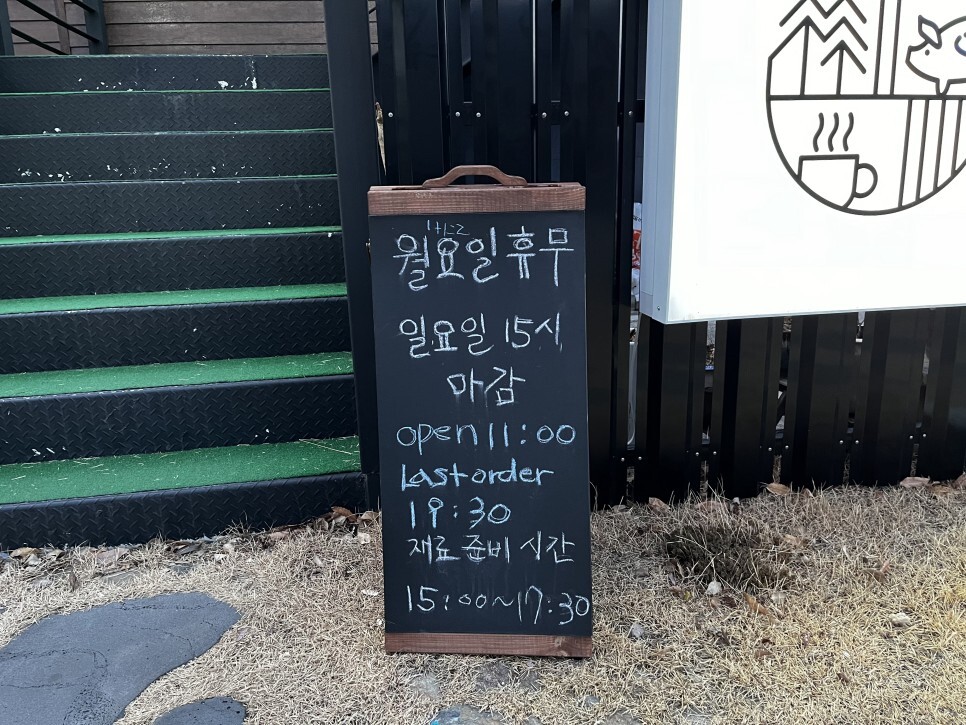 월요일 휴무
일요일 15시
마감
open 11:00
Last order
19:30
재료 준비 시간
15:00~17:30